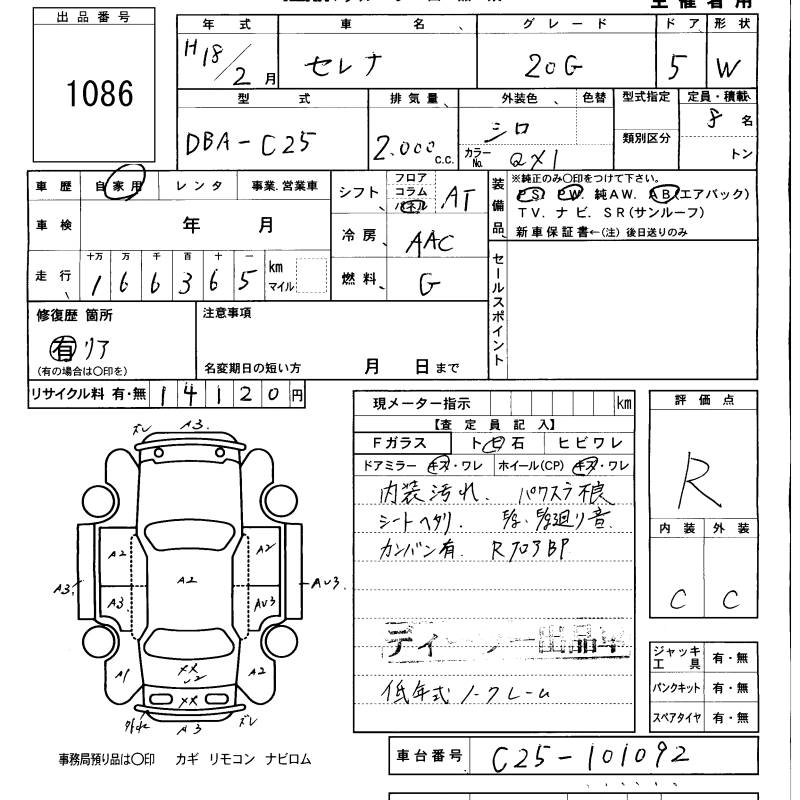 出品番号
1086
年式 車名、 グレード ドア 形状
H18/2月 セレナ 20G 5 W
型式 排気量、 外装色 色替 型式指定 定員・積載
DBA-C25 2.000 c.c. シロ 8名
カラーNo. QX1 類別区分 トン
車歴 自家用 レンタ 事業.営業車
シフト、 フロア コラム パネル AT
装備品、 ※純正のみ〇印をつけて下さい。
PS. PW. 純AW. AB(エアバック)
TV. ナビ. SR(サンルーフ)
新車保証書←(注)後日送りのみ
車検 年 月
冷房、 AAC
走行、 十万 万 千 百 十 一
1 6 6 3 6 5 km マイル
燃料、 G
セールスポイント
修復歴 箇所
有 リア
(有の場合は〇印を)
注意事項
名変期日の短い方 月 日まで
リサイクル料 有・無 1 4 1 2 0 円
現メーター指示 km
【査定員記入】
Fガラス ト日石 ヒビワレ
ドアミラー キズ・ワレ ホイール(CP) キズ・ワレ
内装汚れ. パワスラ不良
シートヘタリ. 廻り音.
カンバン有. Rフロア BP
低年式ノークレーム
評価点
R
内装 外装
C C
ジャッキ工具 有・無
パンクキット 有・無
スペアタイヤ 有・無
ズレ A3.
A2 A2 A2
A3. A3. AU3 AU3.
A1 XX U2 A2
XX
A3 ズレ
事務局預り品は〇印 カギ リモコン ナビロム
車台番号 C25-101092